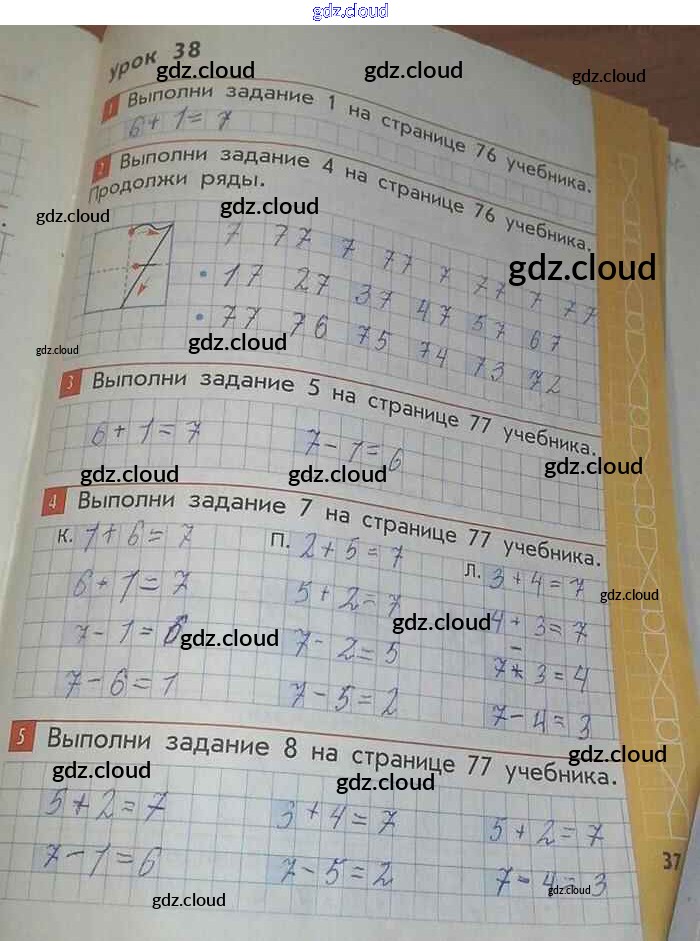 gdz.cloud
урок 38
gdz.cloud gdz.cloud gdz.cloud
1 Выполни задание 1 на странице 76 учебника.
6 + 1 = 7
2 Выполни задание 4 на странице 76 учебника.
Продолжи ряды.
gdz.cloud gdz.cloud
7 77 7 77 7 77 7 77
gdz.cloud
• 17 27 37 47 57 67
• 77 76 75 74 73 72
gdz.cloud gdz.cloud
3 Выполни задание 5 на странице 77 учебника.
6 + 1 = 7 7 - 1 = 6
gdz.cloud gdz.cloud gdz.cloud
4 Выполни задание 7 на странице 77 учебника.
К. 1 + 6 = 7 П. 2 + 5 = 7 Л. 3 + 4 = 7
gdz.cloud
6 + 1 = 7 5 + 2 = 7 4 + 3 = 7
gdz.cloud gdz.cloud
7 - 1 = 6 7 - 2 = 5 7 - 3 = 4
7 - 6 = 1 7 - 5 = 2 7 - 4 = 3
5 Выполни задание 8 на странице 77 учебника.
gdz.cloud gdz.cloud gdz.cloud
5 + 2 = 7 3 + 4 = 7 5 + 2 = 7
7 - 1 = 6 7 - 5 = 2 7 - 4 = 3
37
gdz.cloud gdz.cloud gdz.cloud